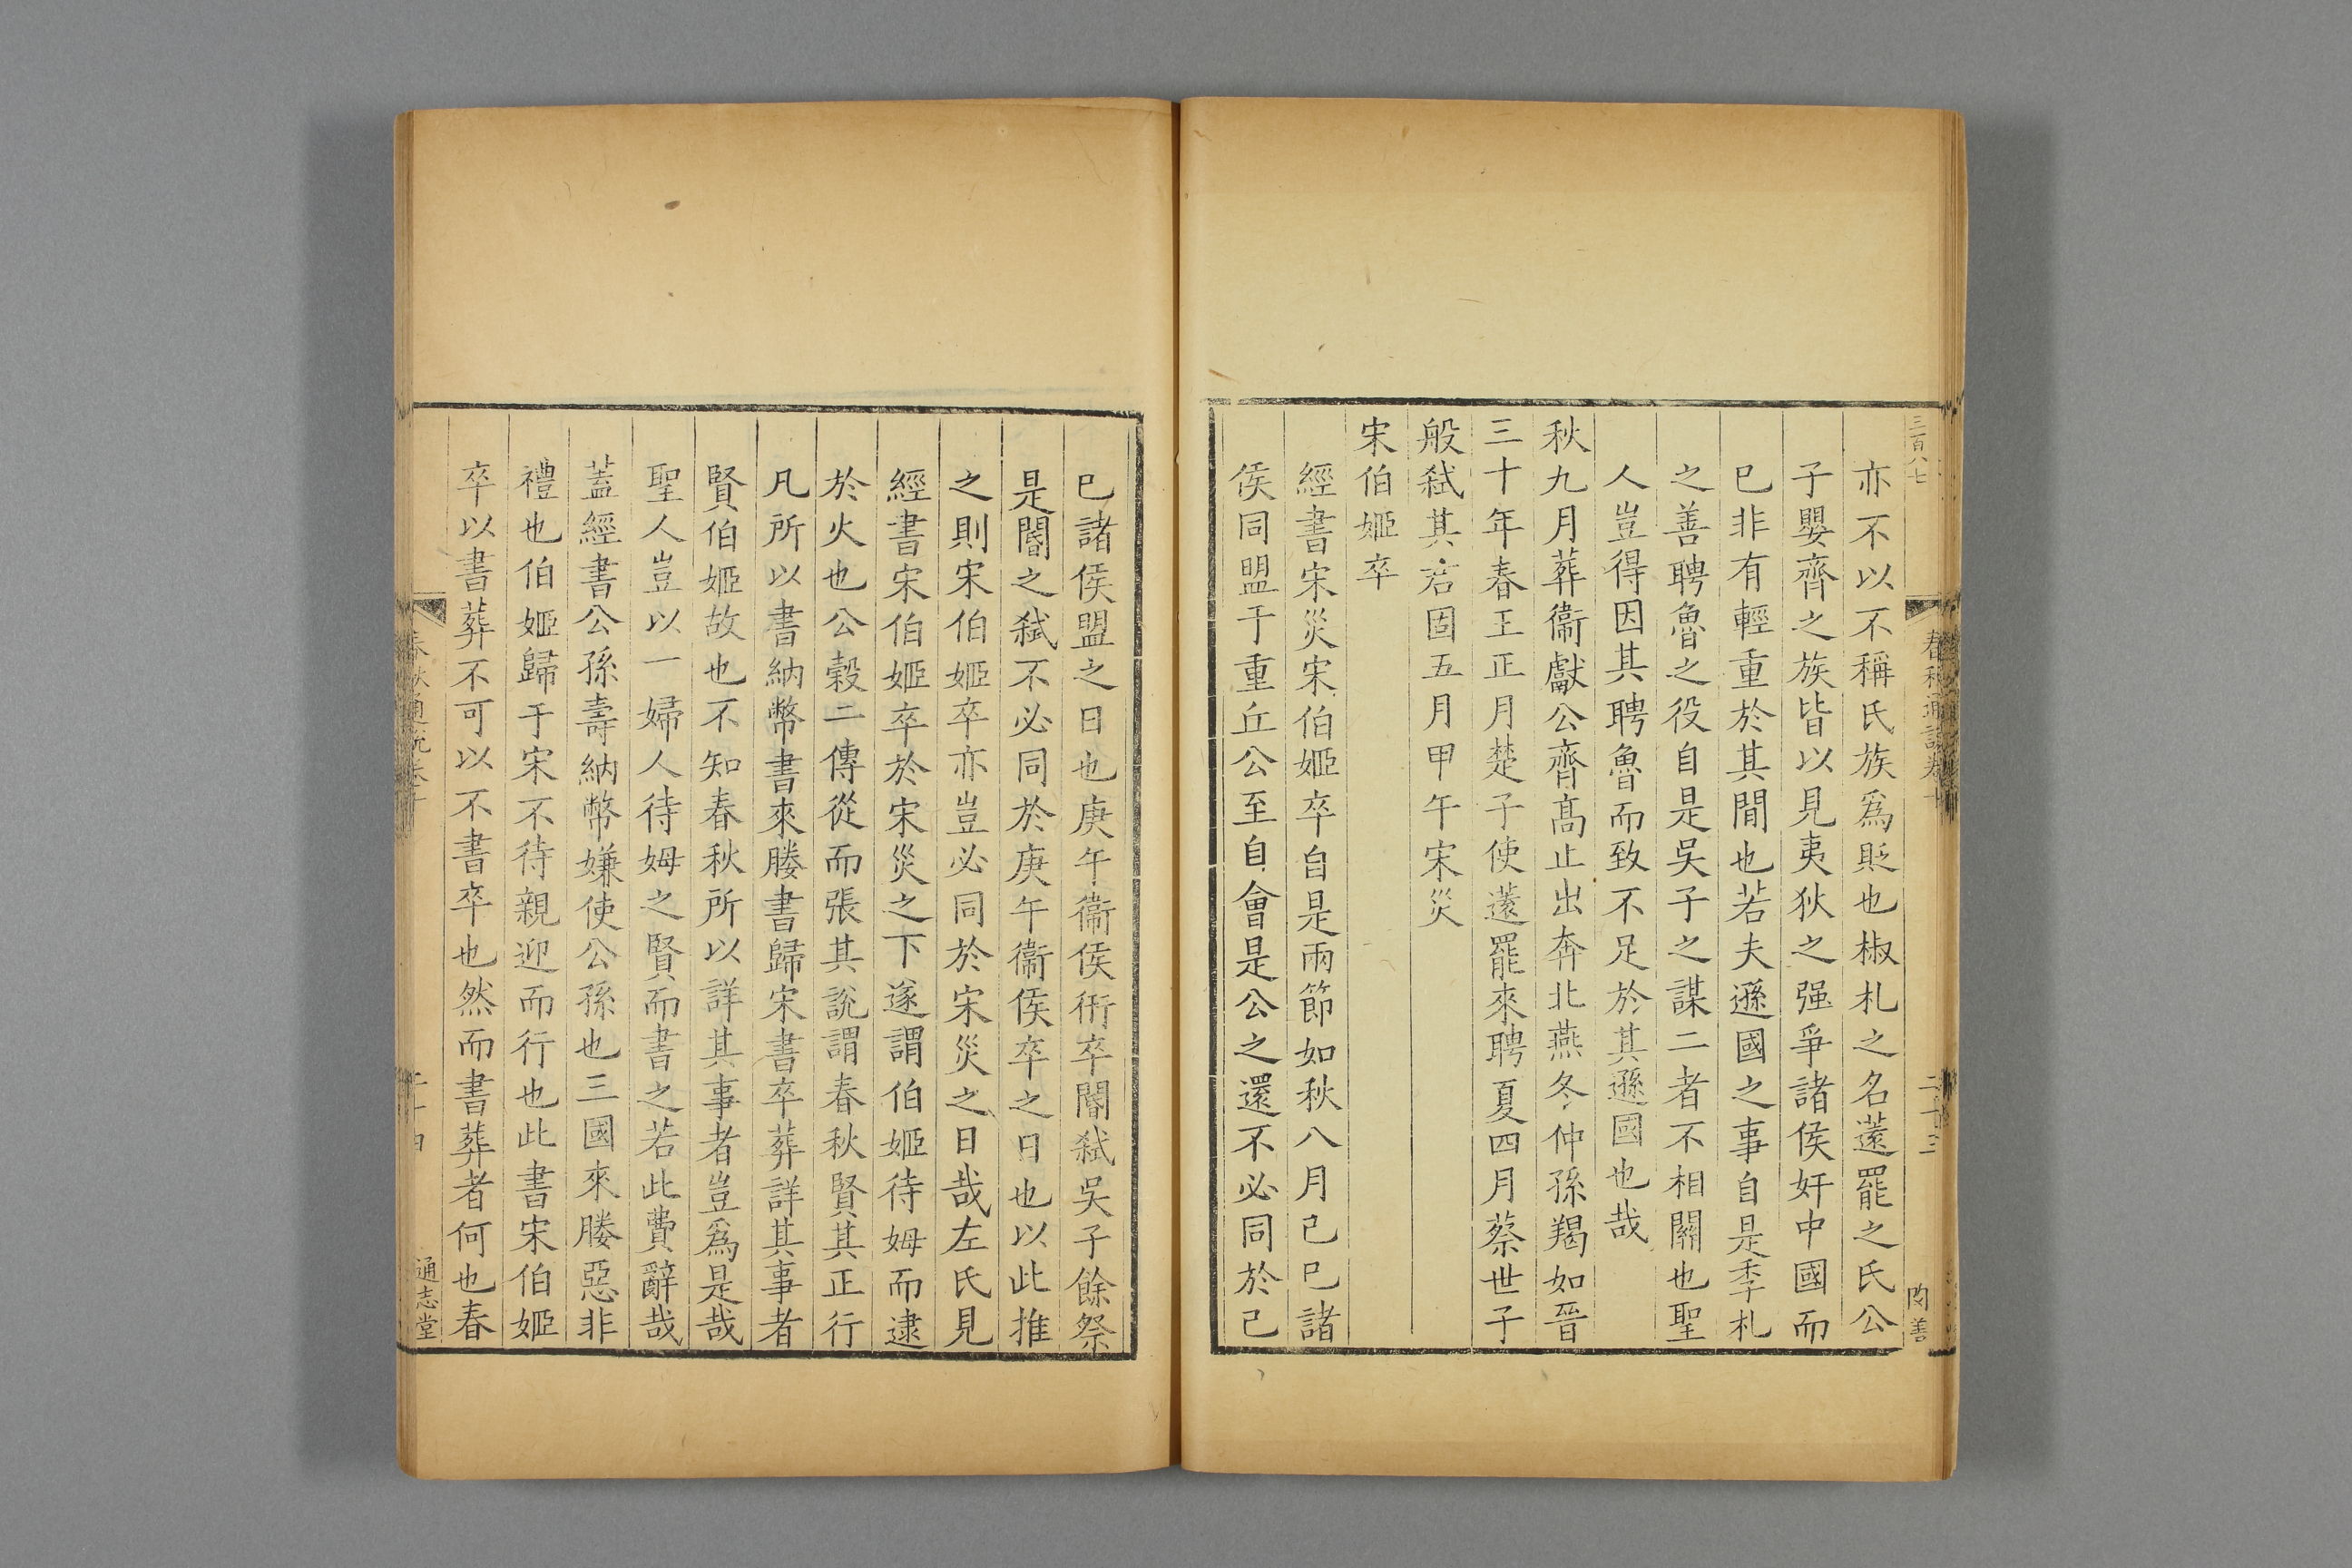 三百八七
春秋通說卷十
二十三
閃善
亦不以不稱氏族爲貶也椒札之名薳罷之氏公
子嬰齊之族皆以見夷狄之强爭諸侯奸中國而
已非有輕重於其間也若夫遜國之事自是季札
之善聘魯之役自是吳子之謀二者不相關也聖
人豈得因其聘魯而致不足於其遜國也哉
秋九月葬衞獻公齊高止出奔北燕冬仲孫羯如晉
三十年春王正月楚子使薳罷來聘夏四月蔡世子
般弑其君固五月甲午宋災
宋伯姬卒
經書宋災宋伯姬卒自是兩節如秋八月己巳諸
侯同盟于重丘公至自會是公之還不必同於己
巳諸侯盟之日也庚午衞侯衎卒閽弑吳子餘祭
是閽之弑不必同於庚午衞侯卒之日也以此推
之則宋伯姬卒亦豈必同於宋災之日哉左氏見
經書宋伯姬卒於宋災之下遂謂伯姬待姆而逮
於火也公穀二傳從而張其說謂春秋賢其正行
凡所以書納幣書來媵書歸宋書卒葬詳其事者
賢伯姬故也不知春秋所以詳其事者豈爲是哉
聖人豈以一婦人待姆之賢而書之若此費辭哉
蓋經書公孫壽納幣嫌使公孫也三國來媵惡非
禮也伯姬歸于宋不待親迎而行也此書宋伯姬
卒以書葬不可以不書卒也然而書葬者何也春
春秋通說卷十
二十四
通志堂